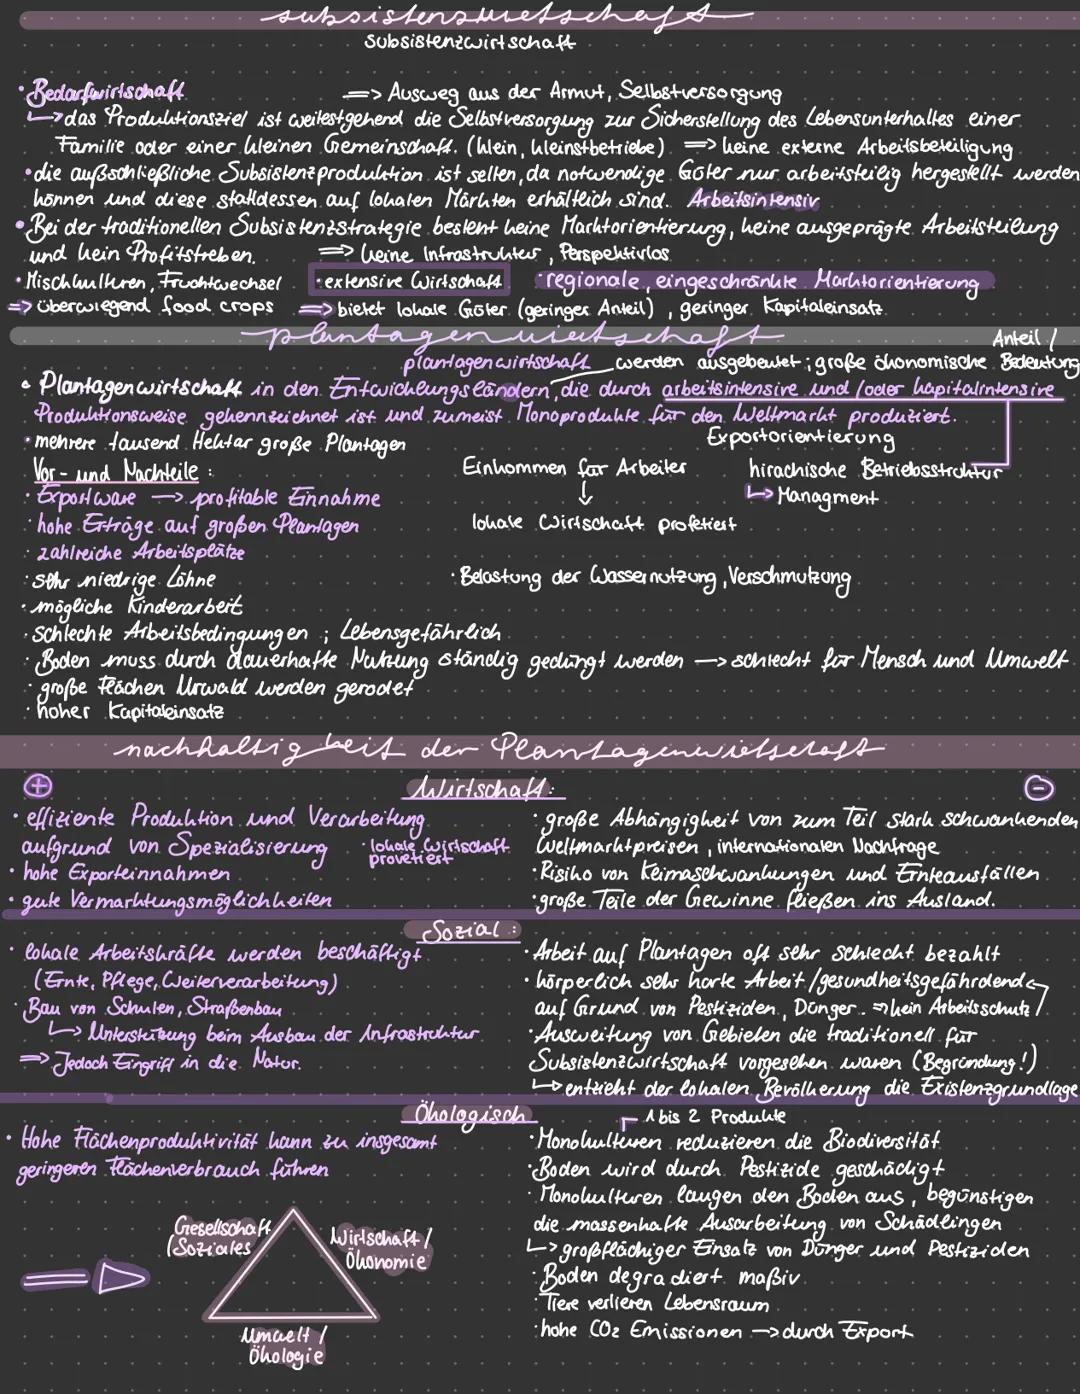 subsistenzwirtschaft
Subsistenzwirtschaft
• Bedarfswirtschaft => Ausweg aus der Armut, Selbstversorgung
↳ das Produktionsziel ist weitestgehend die Selbstversorgung zur Sicherstellung des Lebensunterhaltes einer
Familie oder einer kleinen Gemeinschaft. (klein, kleinstbetriebe) => keine externe Arbeitsbeteiligung
• die außschließliche Subsistenzproduktion ist selten, da notwendige Güter nur arbeitsteilig hergestellt werden
können und diese stattdessen auf lokalen Märkten erhältlich sind. Arbeitsintensiv
• Bei der traditionellen Subsistenzstrategie besteht keine Marktorientierung, keine ausgeprägte Arbeitsteilung
und kein Profitstreben. => keine Infrastruktur, Perspektivlos
• Mischkulturen, Fruchtwechsel • extensive Wirtschaft • regionale, eingeschränkte Marktorientierung
=> überwiegend food crops => bietet lokale Güter (geringer Anteil), geringer Kapitaleinsatz
plantagenwirtschaft
Anteil /
plantagenwirtschaft werden ausgebeutet; große ökonomische Bedeutung
• Plantagenwirtschaft in den Entwicklungsländern, die durch arbeitsintensive und/oder kapitalintensive
Produktionsweise gekennzeichnet ist und zumeist Monoprodukte für den Weltmarkt produziert.
• mehrere tausend Hektar große Plantagen Exportorientierung
Vor- und Nachteile: Einkommen für Arbeiter hirachische Betriebsstruktur
• Exportware → profitable Einnahme ↓ ↳ Managment
• hohe Erträge auf großen Plantagen lokale Wirtschaft profetiert
• zahlreiche Arbeitsplätze
• sehr niedrige Löhne • Belastung der Wassernutzung, Verschmutzung
• mögliche Kinderarbeit
• schlechte Arbeitsbedingungen; Lebensgefährlich
• Boden muss durch dauerhafte Nutzung ständig gedüngt werden → schlecht für Mensch und Umwelt
• große Flächen Urwald werden gerodet
• hoher Kapitaleinsatz
nachhaltigkeit der Plantagenwirtschaft
+ Wirtschaft: -
• effiziente Produktion und Verarbeitung
aufgrund von Spezialisierung • lokale Wirtschaft
provetiert
• hohe Exporteinnahmen
• gute Vermarktungsmöglichkeiten
• große Abhängigkeit von zum Teil stark schwankenden
Weltmarktpreisen, internationalen Nachfrage
• Risiko von Keimaschwankungen und Ernteausfällen
• große Teile der Gewinne fließen ins Ausland.
Sozial:
• lokale Arbeitskräfte werden beschäftigt
(Ernte, Pflege, Weiterverarbeitung)
• Bau von Schulen, Straßenbau
↳ Unterstützung beim Ausbau der Infrastruktur
=> Jedoch Eingriff in die Natur.
• Arbeit auf Plantagen oft sehr schlecht bezahlt
• körperlich sehr harte Arbeit/gesundheitsgefährdend
auf Grund von Pestiziden, Dünger. => kein Arbeitsschutz
• Ausweitung von Gebieten die traditionell für
Subsistenzwirtschaft vorgesehen waren (Begründung!)
↳ entzieht der lokalen Bevölkerung die Existenzgrundlage
Ökologisch
• Hohe Flächenproduktivität kann zu insgesamt
geringeren Flächenverbrauch führen
1 bis 2 Produkte
• Monokulturen reduzieren die Biodiversität
• Boden wird durch Pestizide geschädigt
• Monokulturen laugen den Boden aus, begünstigen
die massenhafte Ausarbeitung von Schädlingen
↳ großflächiger Einsatz von Dünger und Pestiziden
• Boden degradiert maßiv
• Tiere verlieren Lebensraum
• hohe CO2 Emissionen → durch Export
Gesellschaft
/Soziales
Wirtschaft /
Ökonomie
Umwelt /
Ökologie